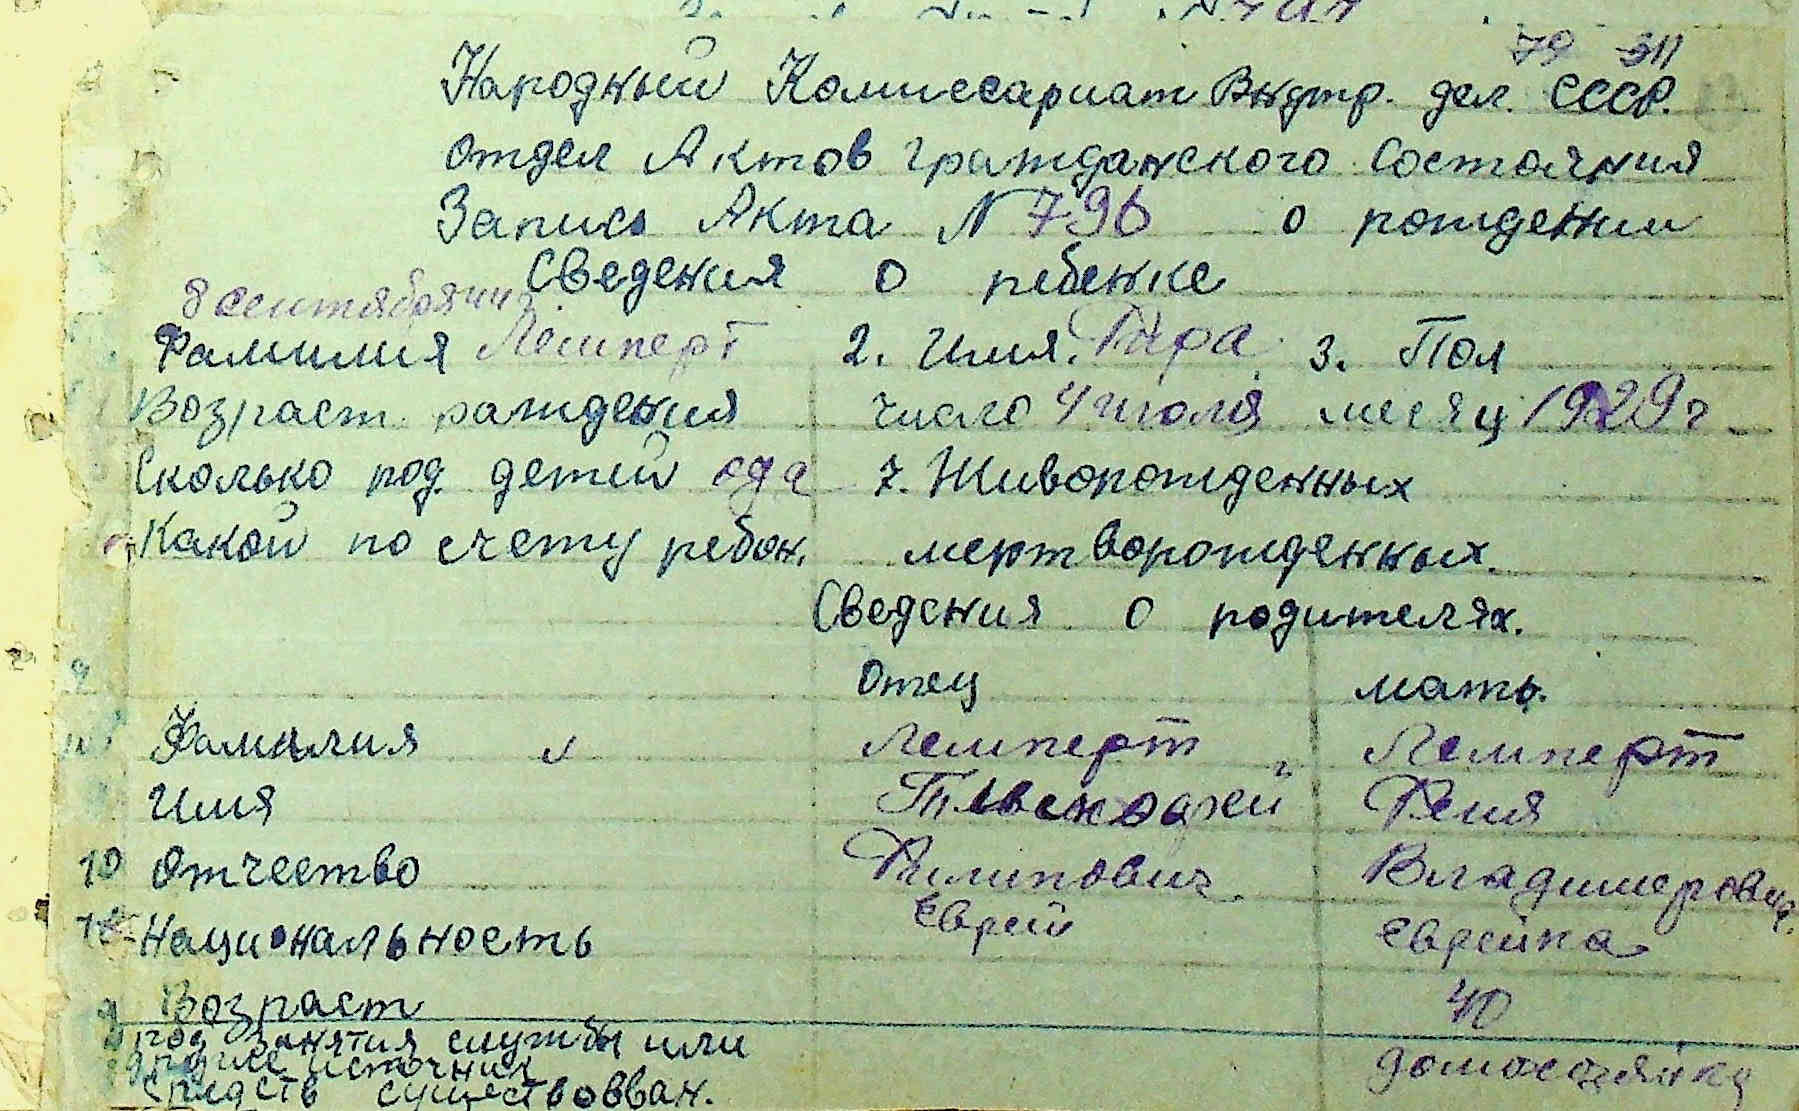 79 311
Народный Комиссариат Внутр. дел. СССР.
Отдел Актов гражданского состояния
Запись Акта N 796 о рождении
Сведения о ребенке
8 сентября 44
Фамилия Лемперт 2. Имя. 3. Пол
Возраст рождения число 4 июля месяц 1929 г
Сколько род детей 7. Живорожденных
Какой по счету ребон. мертворожденных.
Сведения о родителях.
9 Отец мать.
Фамилия Лемперт Лемперт
Имя Феня
10 Отчество Филипович Владимеровна
Национальность Еврей Еврейка
Возраст 40
род занятия службы или
средств существовван. домохозяйка